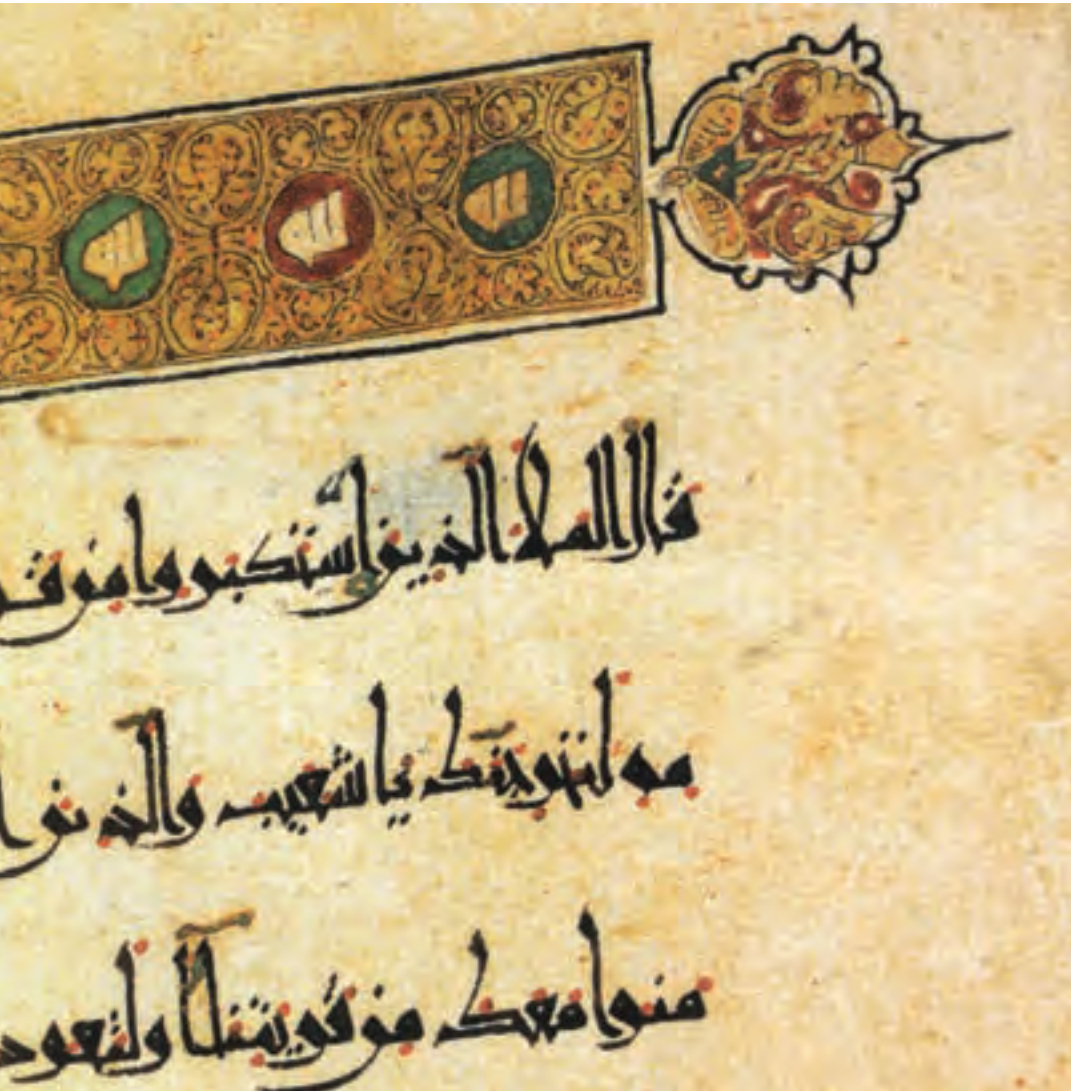 قال الملا الذين استكبروا من قـ
مه لنخرجنك يا شعيب والذين ا
منوا معك من قريتنا او لتعود